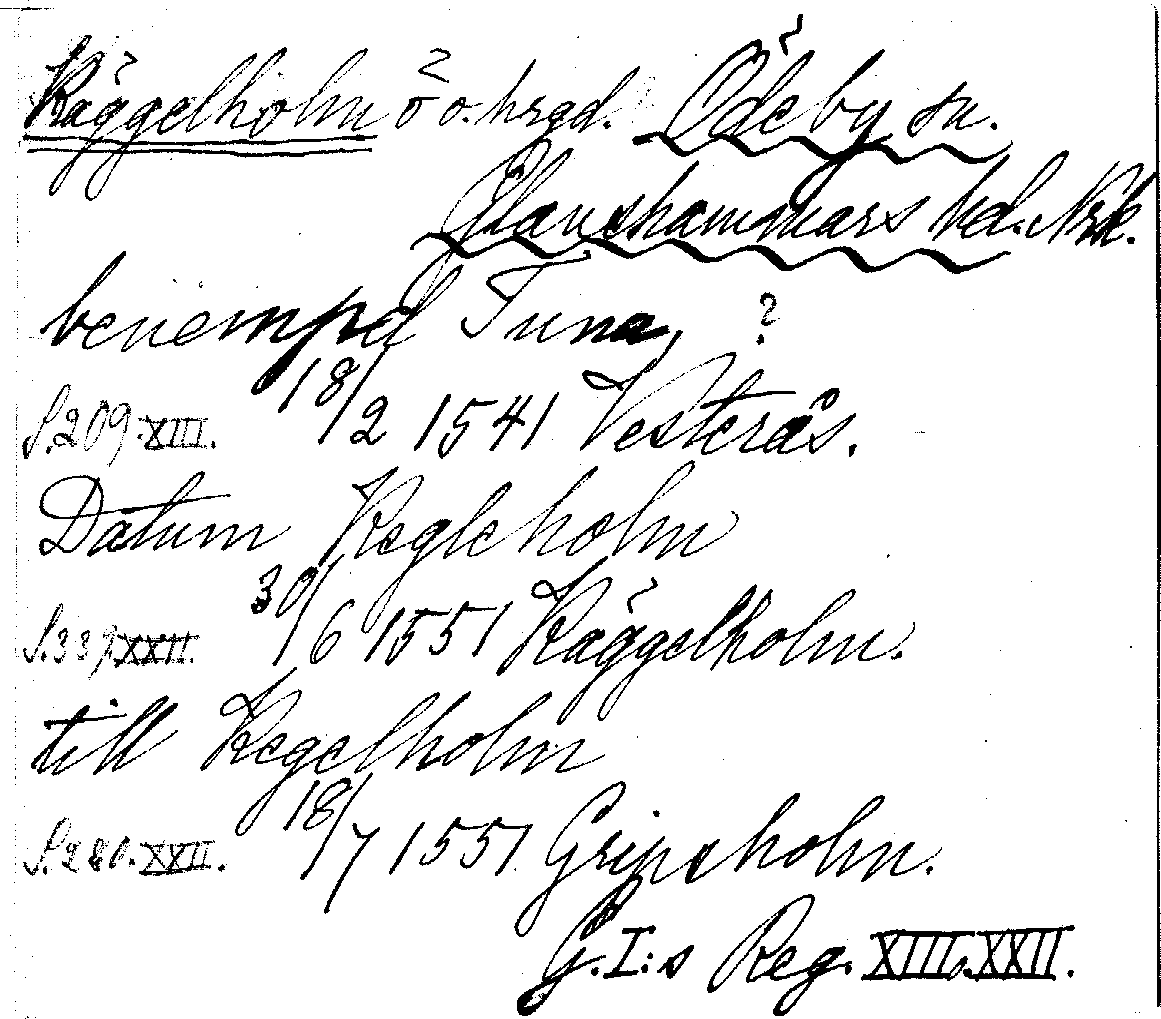 Käggelholm ö o. hrgd. Ödeby sn.
2
Glanshammars hd. Nrk.
benempd Tuna ?
S. 209. XIII. 18/2 1541 Vesterås.
Datum Kegleholm
S. 337. XXII. 30/6 1551 Käggelholm.
till Kegelholm
S. 280. XXII. 18/7 1551 Gripsholm.
G. I:s Reg. XIII. XXII.